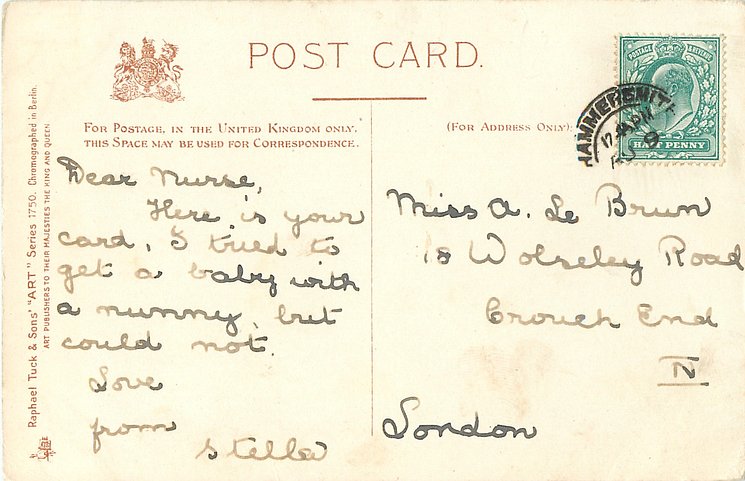 POST CARD.
FOR POSTAGE, IN THE UNITED KINGDOM ONLY,
THIS SPACE MAY BE USED FOR CORRESPONDENCE.
(FOR ADDRESS ONLY):
POSTAGE REVENUE
HALF PENNY
HAMMERSMITH
Raphael Tuck & Sons' "ART" Series 1750. Chromographed in Berlin.
ART PUBLISHERS TO THEIR MAJESTIES THE KING AND QUEEN
Dear Nurse,
Here is your
card, I tried to
get a baby with
a nunny, but
could not.
Love
from
Stella
Miss A. Le Brun
18 Wolseley Road
Crouch End
N
London